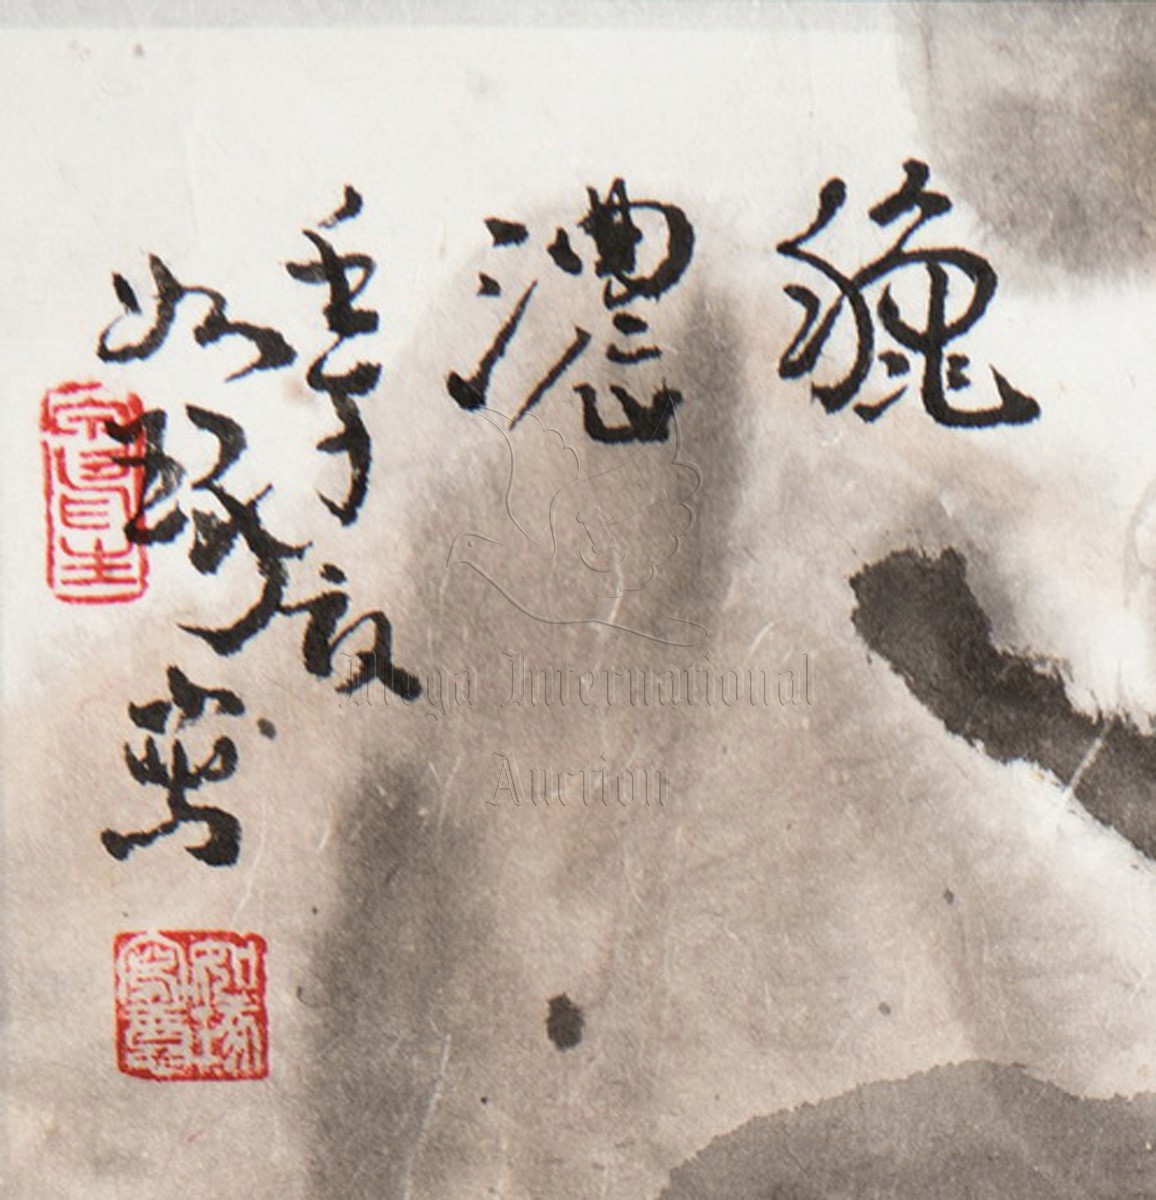 穐濃
壬子夏
如琢寫
Mega International
Auction